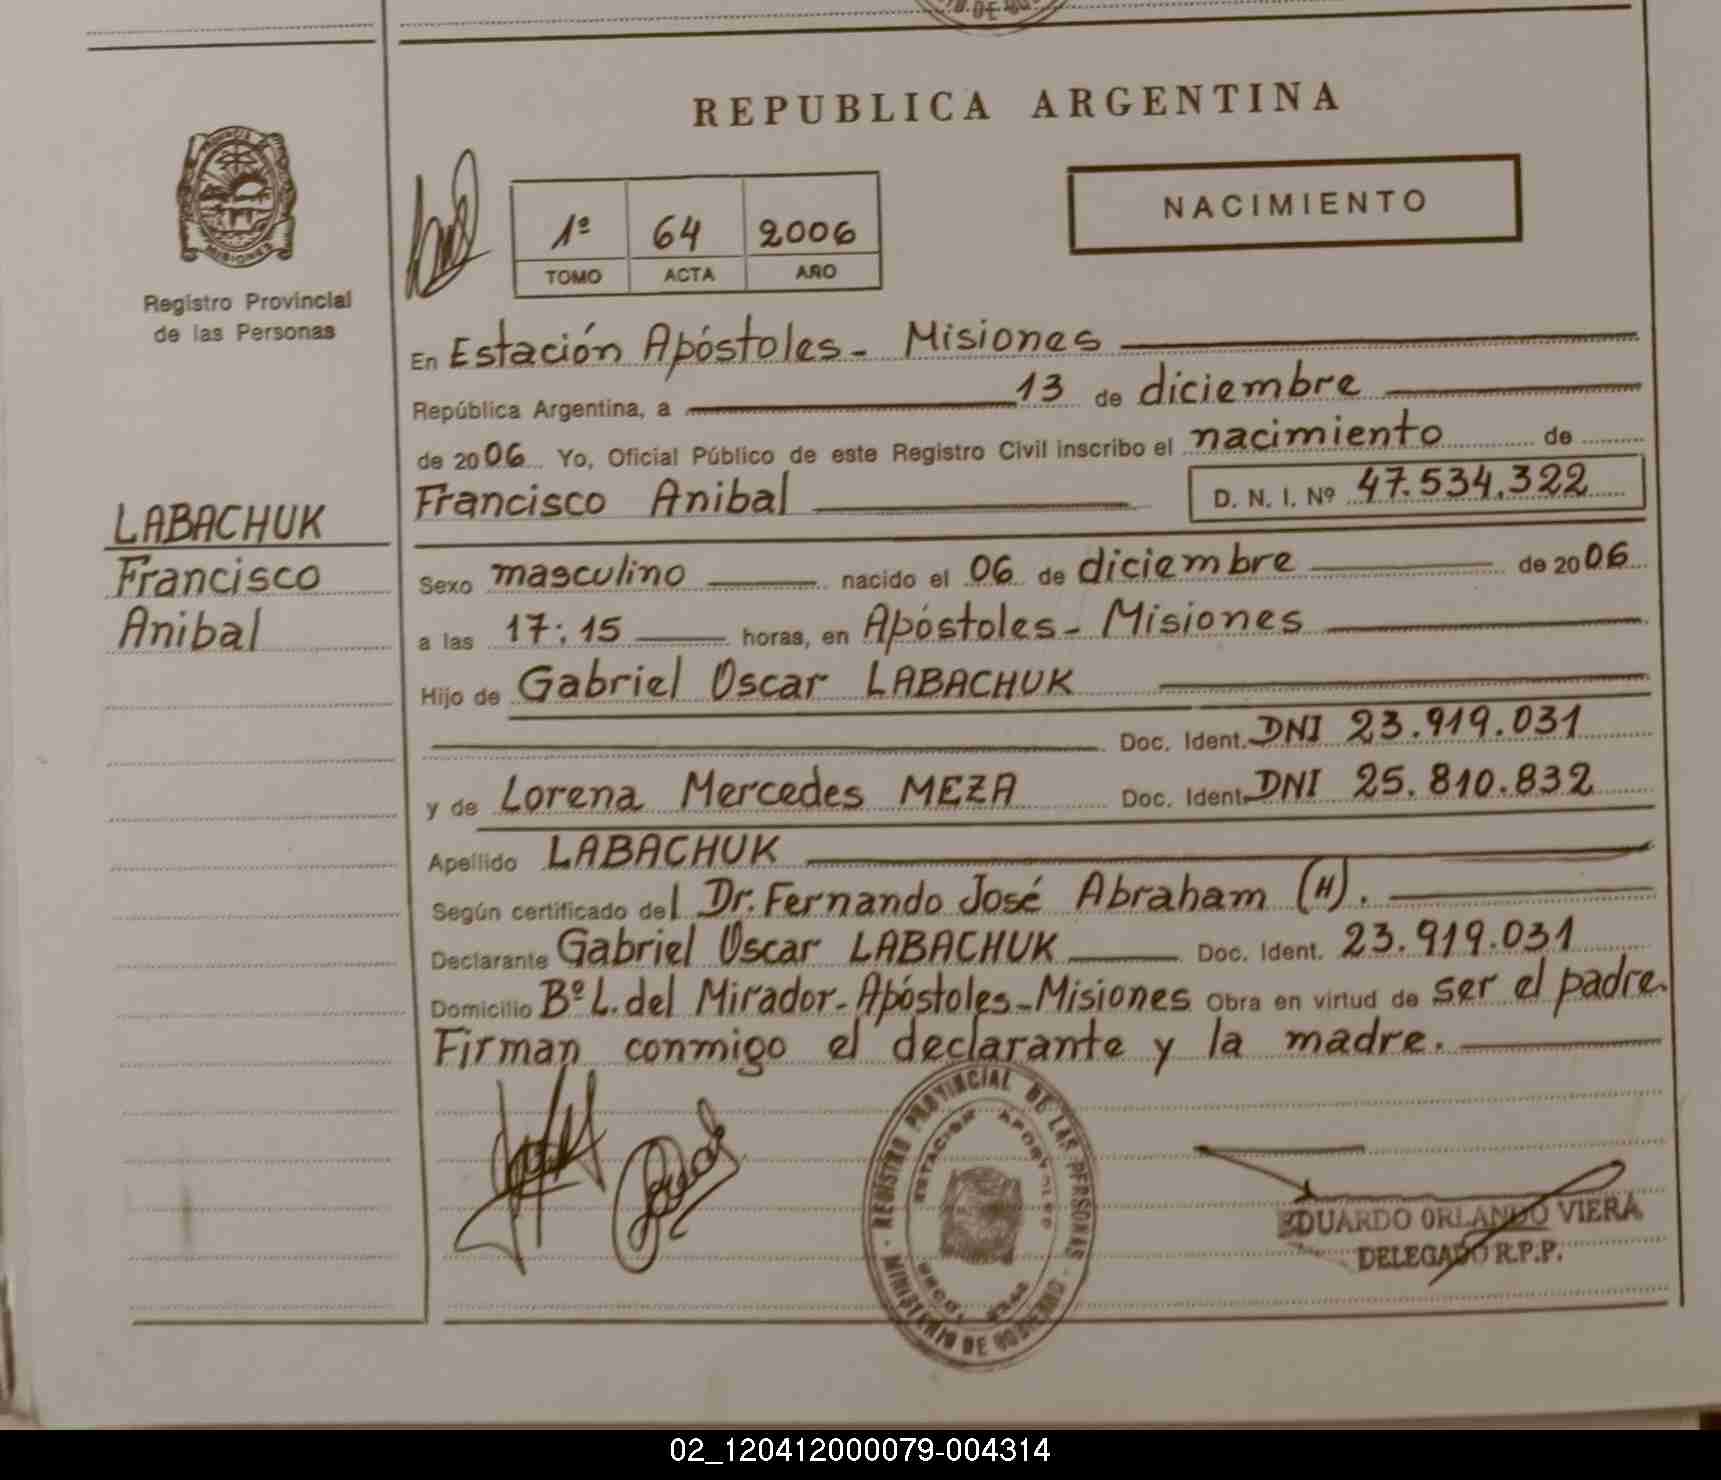 REPUBLICA ARGENTINA
NACIMIENTO
1º 64 2006
TOMO ACTA AÑO
MISIONES
Registro Provincial
de las Personas
En Estación Apóstoles - Misiones
República Argentina, a 13 de diciembre
de 2006 Yo, Oficial Público de este Registro Civil inscribo el nacimiento de
Francisco Anibal D. N. I. Nº 47.534.322
LABACHUK
Francisco
Anibal
Sexo masculino nacido el 06 de diciembre de 2006
a las 17:15 horas, en Apóstoles - Misiones
Hijo de Gabriel Oscar LABACHUK
Doc. Ident. DNI 23.919.031
y de Lorena Mercedes MEZA Doc. Ident. DNI 25.810.832
Apellido LABACHUK
Según certificado del Dr. Fernando José Abraham (H).
Declarante Gabriel Oscar LABACHUK Doc. Ident. 23.919.031
Domicilio Bº L. del Mirador - Apóstoles - Misiones Obra en virtud de ser el padre.
Firman conmigo el declarante y la madre.
REGISTRO PROVINCIAL DE LAS PERSONAS
ESTACION APOSTOLES
MINISTERIO DE GOBIERNO
EDUARDO ORLANDO VIERA
DELEGADO R.P.P.
02_120412000079-004314